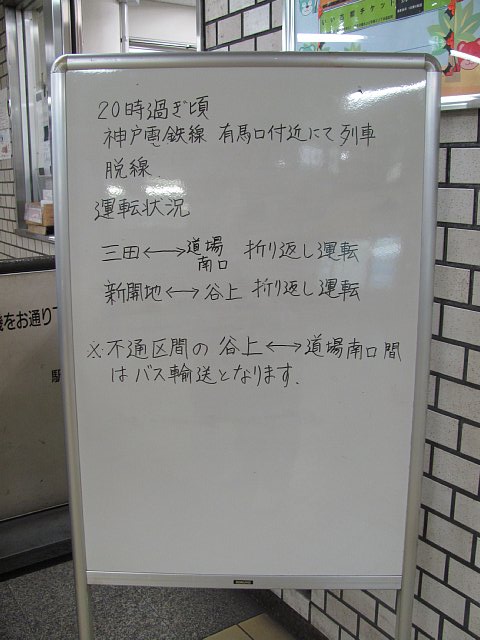 20時過ぎ頃
神戸電鉄線 有馬口付近にて列車
脱線
運転状況
三田←→道場南口 折り返し運転
新開地←→谷上 折り返し運転
※不通区間の谷上←→道場南口間
はバス輸送となります.
をお通り下
駅